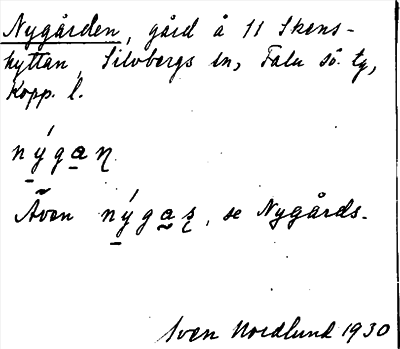 Nygården, gård å 11 Skens-
hyttan, Silvbergs sn, Falu sö. tg,
Kopp. l.
nýgaɳ
Även nýgaʂ, se Nygårds-
Sven Nordlund 1930